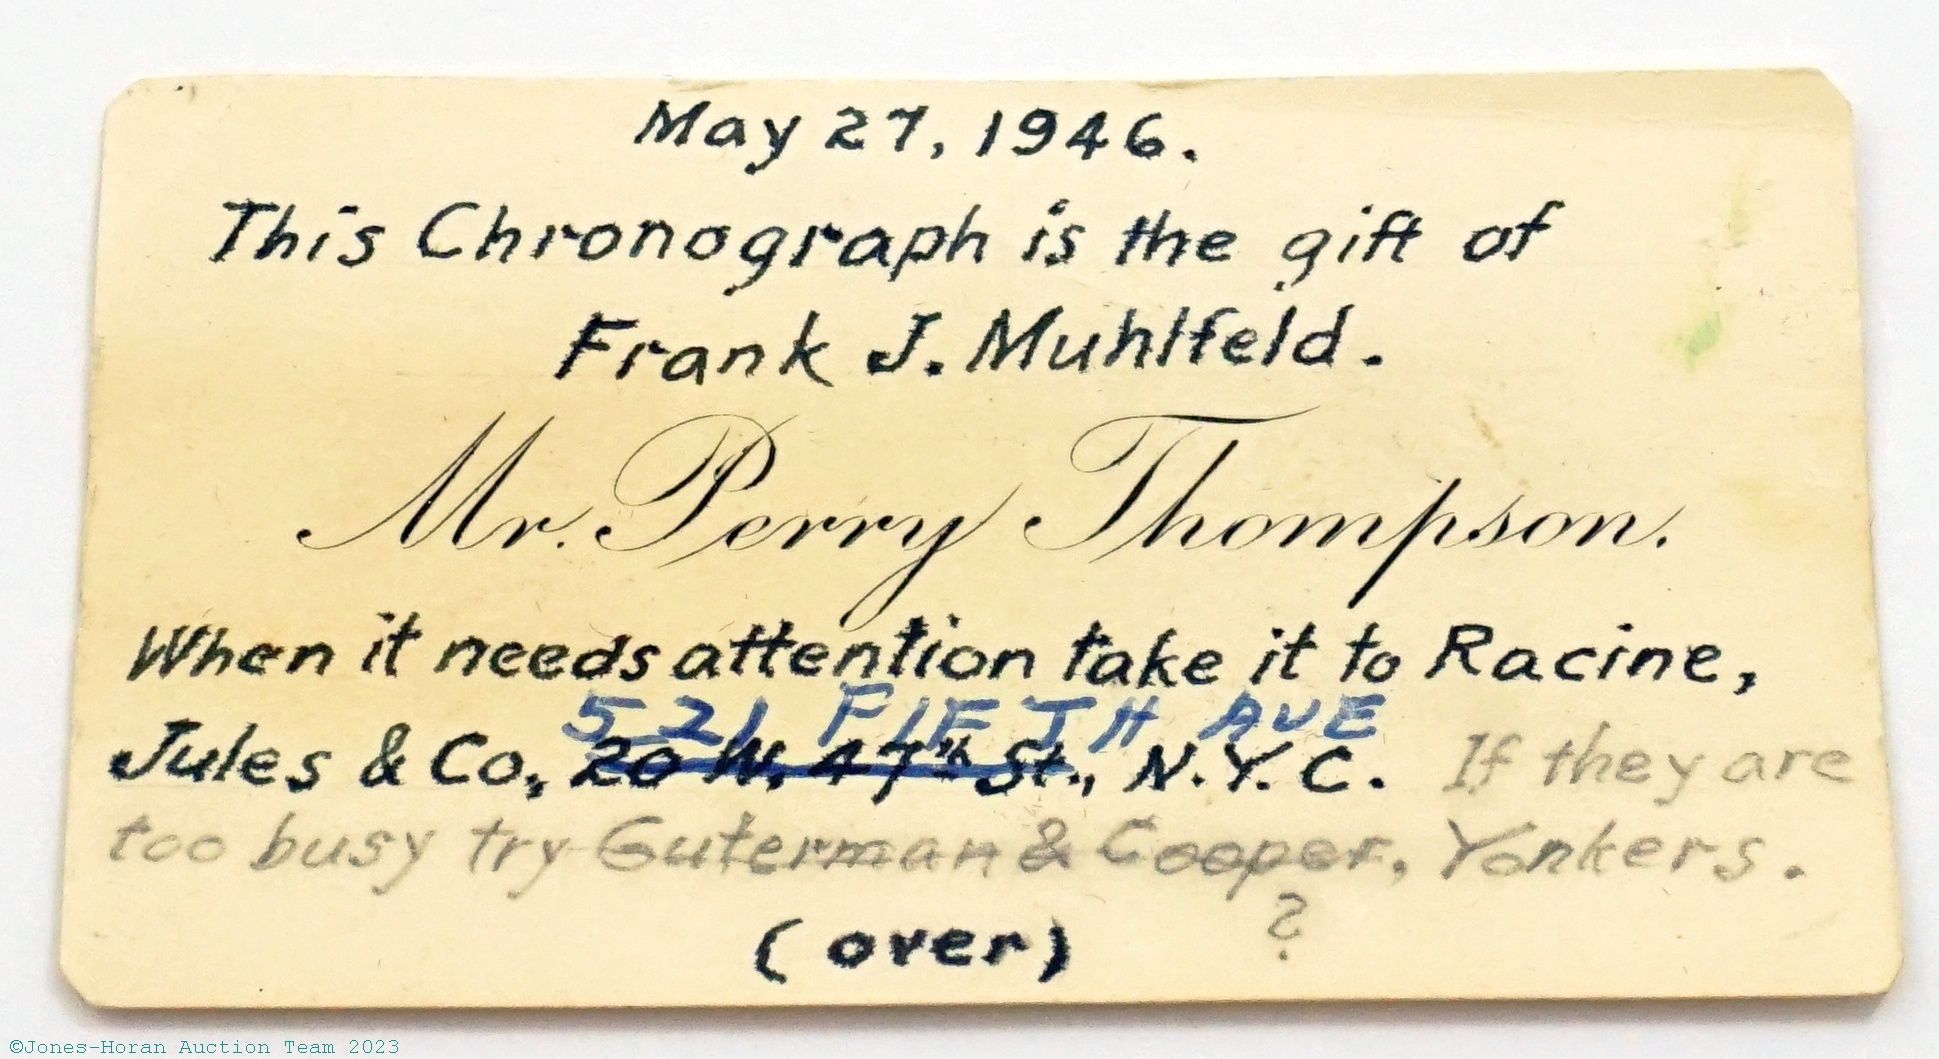 May 27, 1946.
This Chronograph is the gift of
Frank J. Muhlfeld.
Mr. Perry Thompson.
When it needs attention take it to Racine,
521 FIFTH AVE
Jules & Co., 20 W. 47th St., N.Y.C. If they are
too busy try Guterman & Cooper, Yonkers.
?
(over)
©Jones-Horan Auction Team 2023